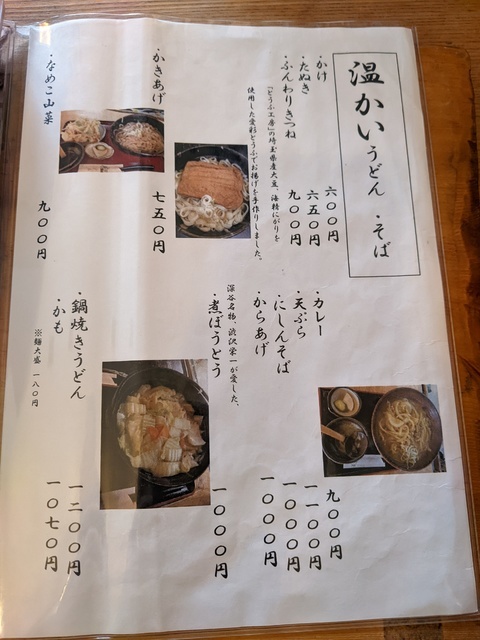 温かいうどん・そば
・かけ 六〇〇円
・たぬき 六五〇円
・ふんわりきつね 九〇〇円
『とうふ工房』の埼玉県産大豆、海精にがりを
使用した愛彩とうふでお揚げを手作りしました。
・かきあげ 七五〇円
・なめこ山菜 九〇〇円
・カレー 九〇〇円
・天ぷら 一一〇〇円
・にしんそば 一〇〇〇円
・からあげ 一〇〇〇円
深谷名物、渋沢栄一が愛した、
・煮ぼうとう 一〇〇〇円
・鍋焼きうどん 一二〇〇円
・かも 一〇七〇円
※麺大盛 一八〇円